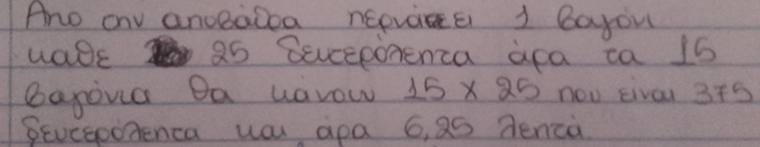 Απο την αποβάθρα περνάει 1 βαγόνι
κάθε 25 δευτερόλεπτα άρα τα 15
βαγόνια θα κάνουν 15 x 25 που είναι 375
δευτερόλεπτα και άρα 6,25 λεπτά